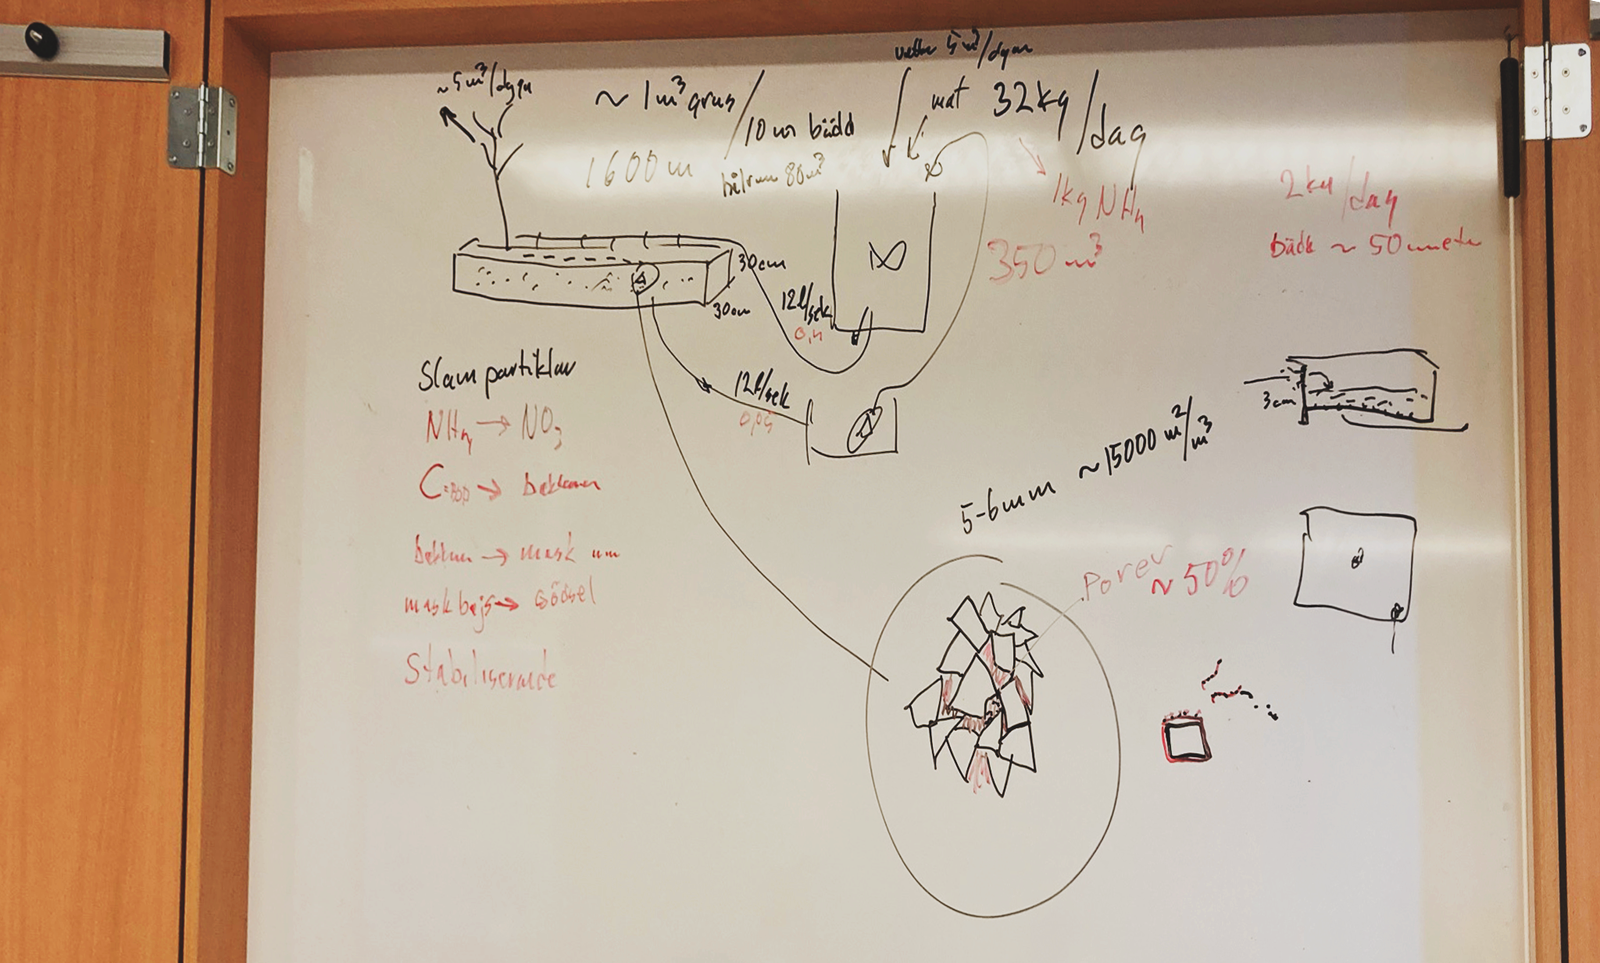 ~5m³/dygn
~ 1m³ grus / 10 m bädd
1600 m
80m³
vatten 5 m³/dygn
mat 32kg/dag
1kg NH₄
350 m³
2kg/dag
bädd ~ 50 meter
30cm
30cm
12l/sek
0,4
12l/sek
0,05
Slam partiklar
NH₄ → NO₃
C → bakterier
→ mask
maskbajs → gödsel
Stabiliserande
3cm
5-6mm ~15000 m²/m³
Porer
~ 50%